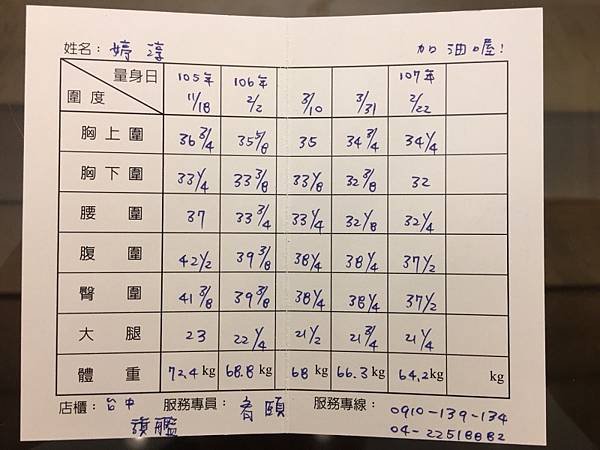 姓名：婷淳 加油喔!
量身日 105年 106年 107年
圍度 11/18 2/2 3/10 3/31 2/22
胸上圍 36 3/4 35 5/8 35 34 3/4 34 1/4
胸下圍 33 1/4 33 3/8 33 1/8 32 3/8 32
腰圍 37 33 3/4 33 1/4 32 1/8 32 1/4
腹圍 42 1/2 39 3/8 38 1/4 38 1/4 37 1/2
臀圍 41 3/8 39 3/8 38 1/4 38 1/4 37 1/2
大腿 23 22 1/4 21 1/2 21 3/4 21 1/4
體重 72.4 kg 68.8 kg 68 kg 66.3 kg 64.2 kg kg
店櫃：台中 服務專員： 頤 服務專線：0910-139-134
旗艦 04-22518882